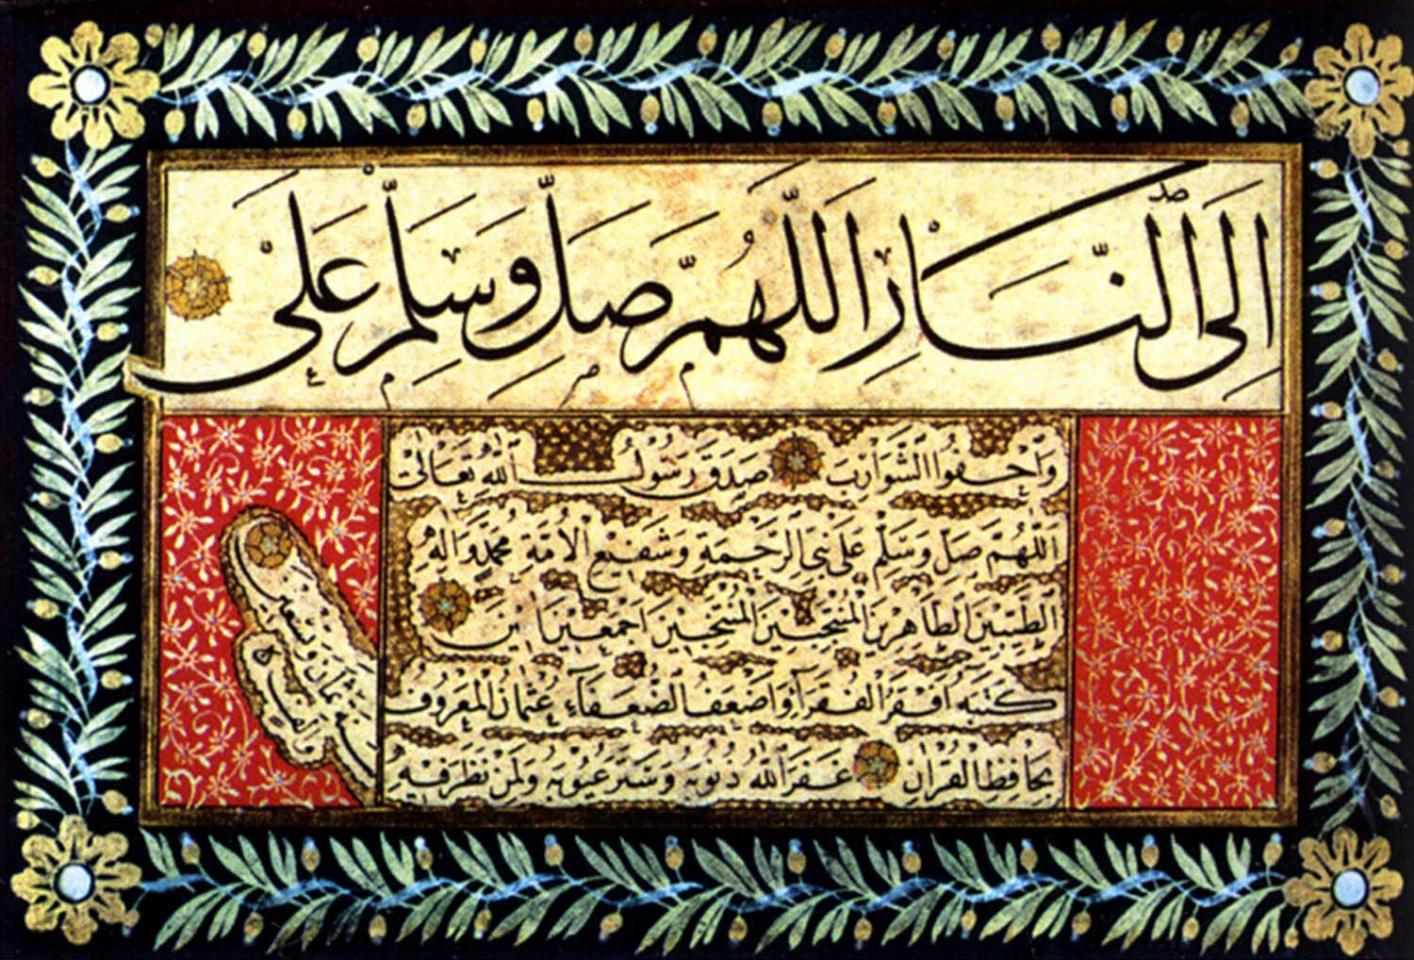 اِلَى النَّارِ اَللّٰهُمَّ صَلِّ وَسَلِّمْ عَلٰى
وَاحفُوا الشَّوَارِبَ صَدَقَ رَسُولُ اللّٰهِ تَعَالٰى
اَللّٰهُمَّ صَلِّ وَسَلِّمْ عَلٰى نَبِىِّ الرَّحْمَةِ وَشَفِيعِ الْاُمَّةِ مُحَمَّدٍ وَاٰلِهِ
الطَّيِّبِينَ الطَّاهِرِينَ اَجْمَعِينَ
كَتَبَهُ اَفْقَرُ الْفُقَرَآءِ وَاَضْعَفُ الضُّعَفَآءِ عُثْمَانُ الْمَعْرُوفُ
بِحَافِظِ الْقُرْاٰنِ غَفَرَ اللّٰهُ ذُنُوبَهُ وَسَتَرَ عُيُوبَهُ وَلِمَنْ نَظَرَ فِيهِ